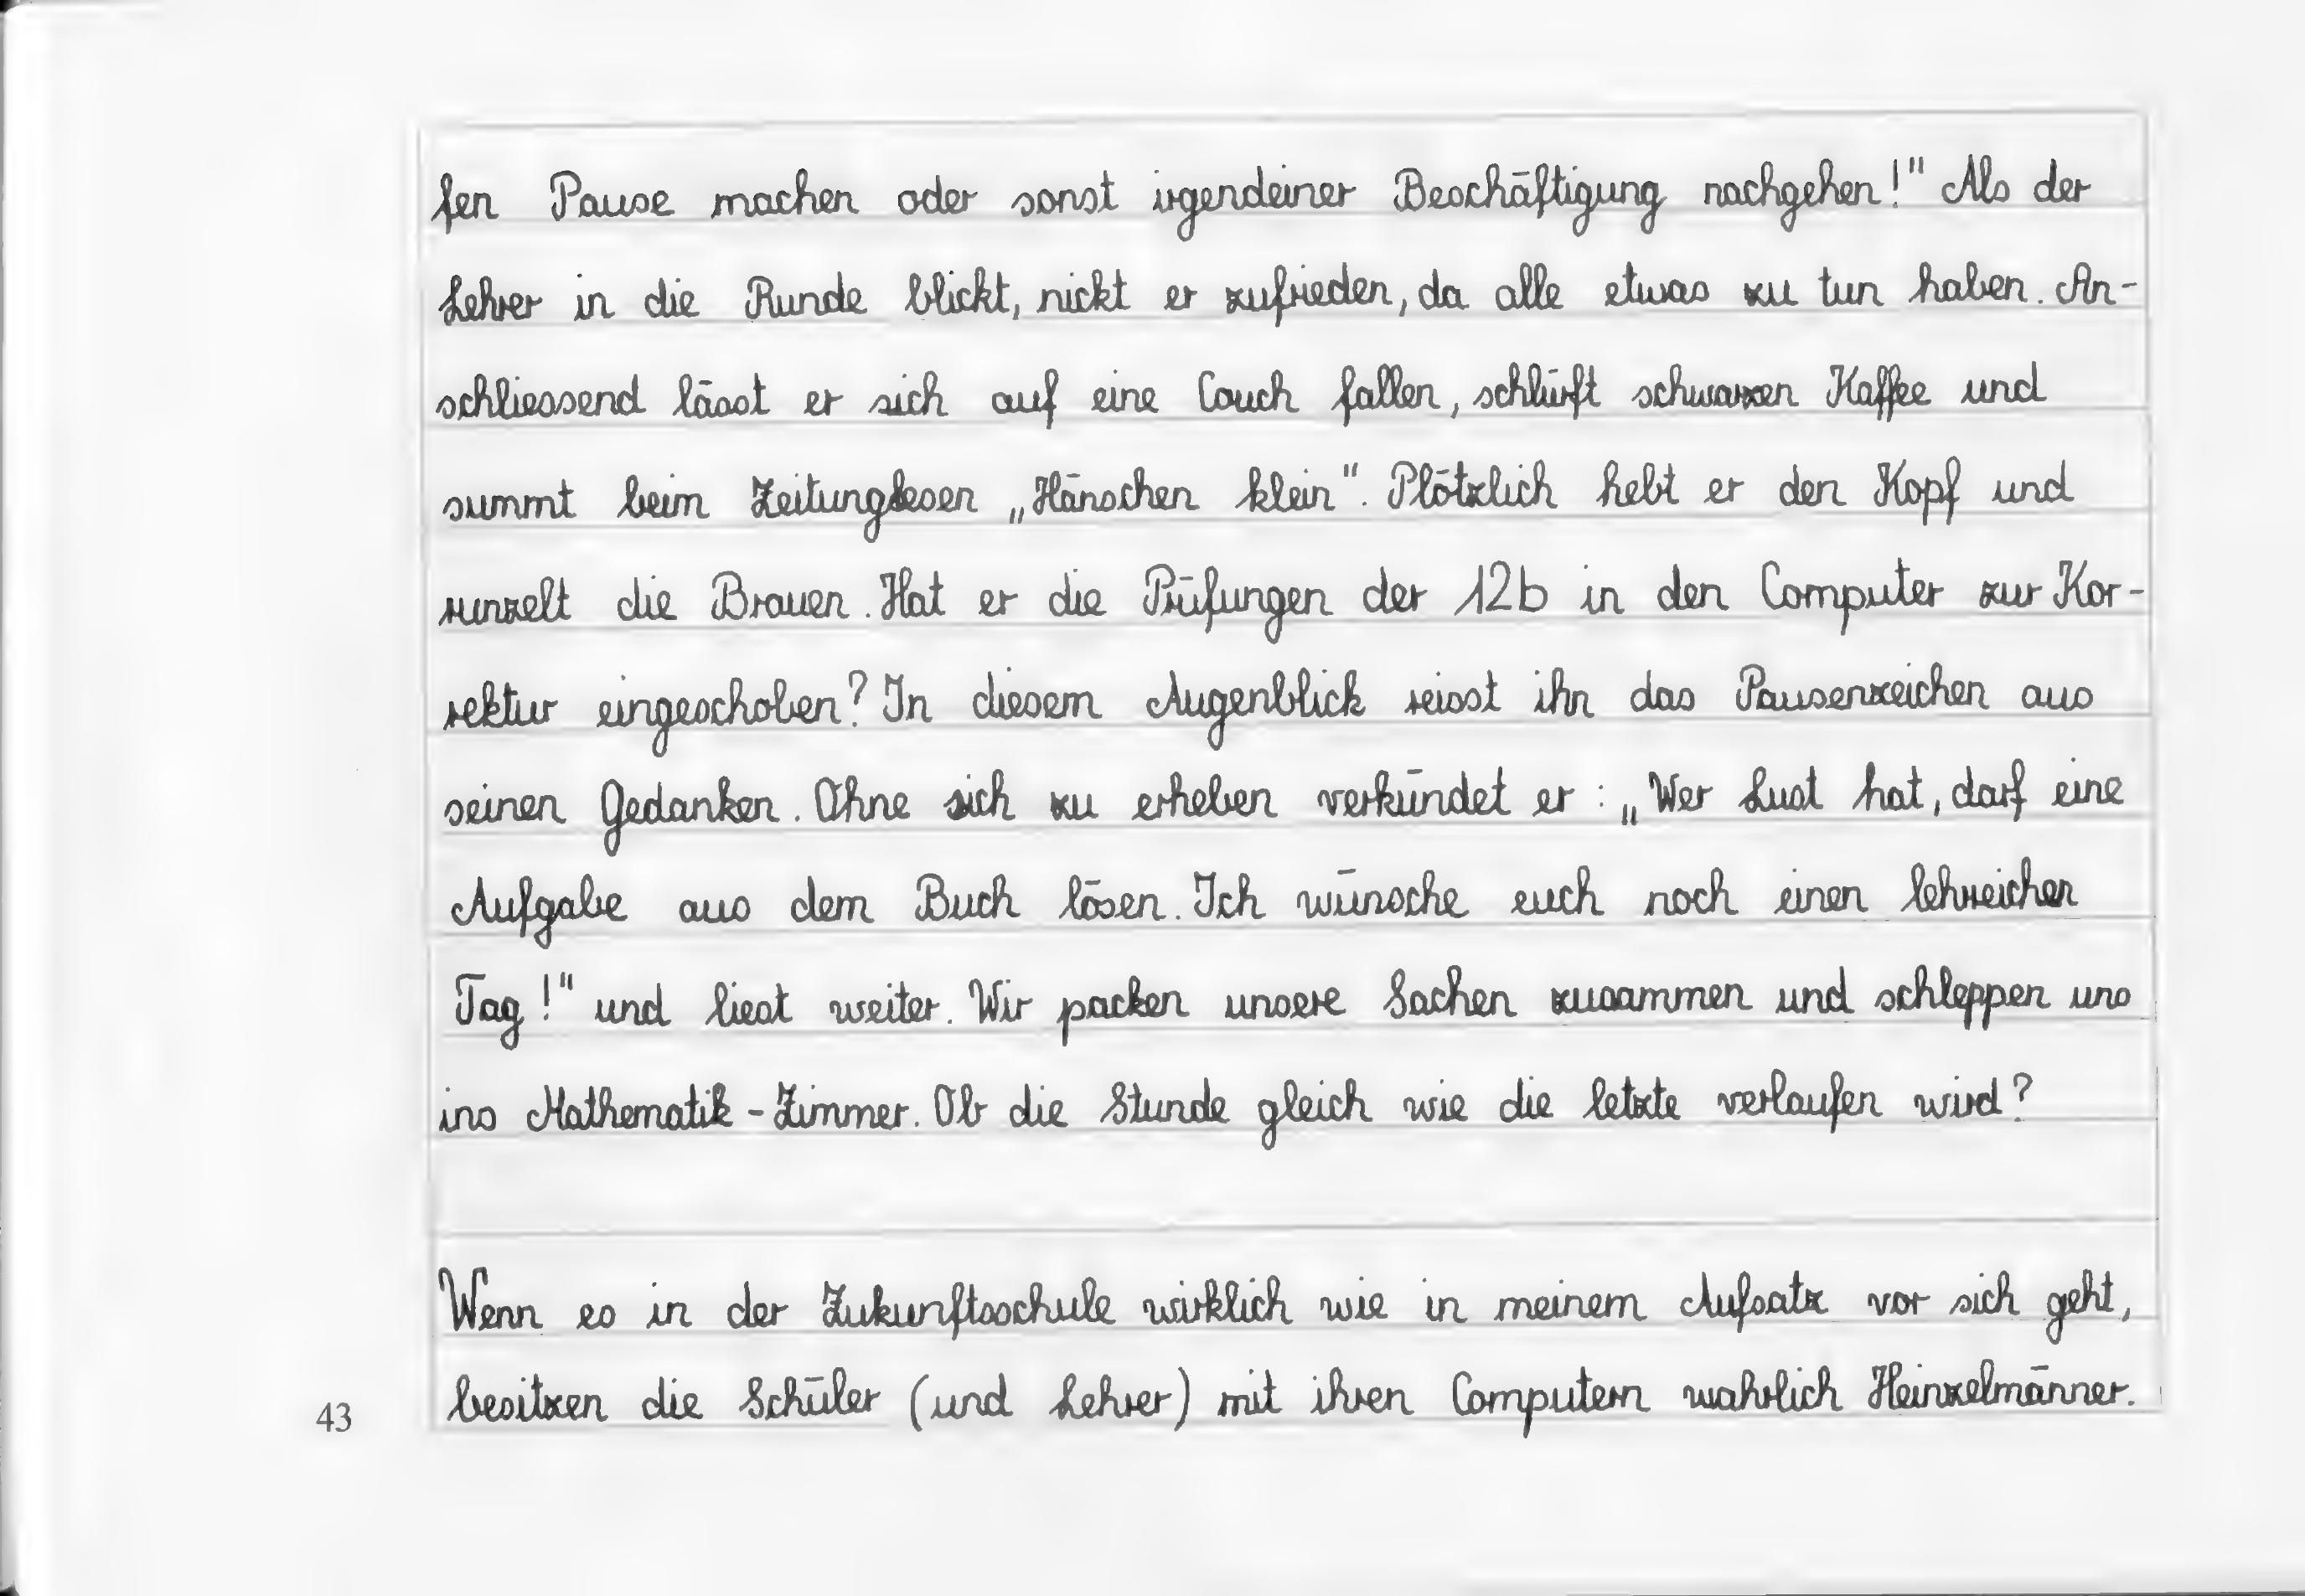 fen Pause machen oder sonst irgendeiner Beschäftigung nachgehen!" Als der
Lehrer in die Runde blickt, nickt er zufrieden, da alle etwas zu tun haben. An-
schliessend lässt er sich auf eine Couch fallen, schlürft schwarzen Kaffee und
summt beim Zeitunglesen „Hänschen klein". Plötzlich hebt er den Kopf und
runzelt die Brauen. Hat er die Prüfungen der 12b in den Computer zur Kor-
rektur eingeschoben? In diesem Augenblick reisst ihn das Pausenzeichen aus
seinen Gedanken. Ohne sich zu erheben verkündet er: „Wer Lust hat, darf eine
Aufgabe aus dem Buch lösen. Ich wünsche euch noch einen lehrreichen
Tag!" und liest weiter. Wir packen unsere Sachen zusammen und schleppen uns
ins Mathematik-Zimmer. Ob die Stunde gleich wie die letzte verlaufen wird?
Wenn es in der Zukunftsschule wirklich wie in meinem Aufsatz vor sich geht,
besitzen die Schüler (und Lehrer) mit ihren Computern wahrlich Heinzelmänner.
43